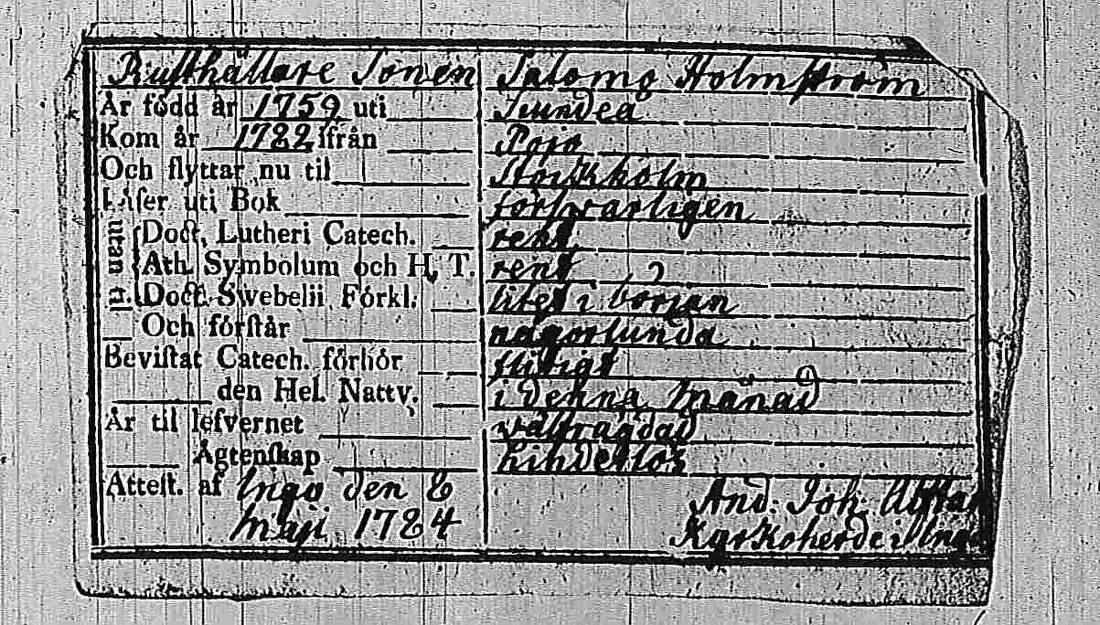 Rusthållare Sonen Salomo Holmström
Är född år 1759 uti Siundeå
Kom år 1782 ifrån Pojo
Och flyttar nu til Stockholm
Läser uti Bok försvarligen
utan til Doct. Lutheri Catech. rent
Ath. Symbolum och H. T. rent
Doct. Swebelii Förkl. litet i början
Och förstår någorlunda
Bevistat Catech. förhör flitigt
den Hel. Nattv. i denna Månad
Är til lefvernet välfrägdad
Ägtenskap hinderlös
Attest. af Ingo den 8 And: Joh:
Maji 1784 Kyrkoherde i Ingo